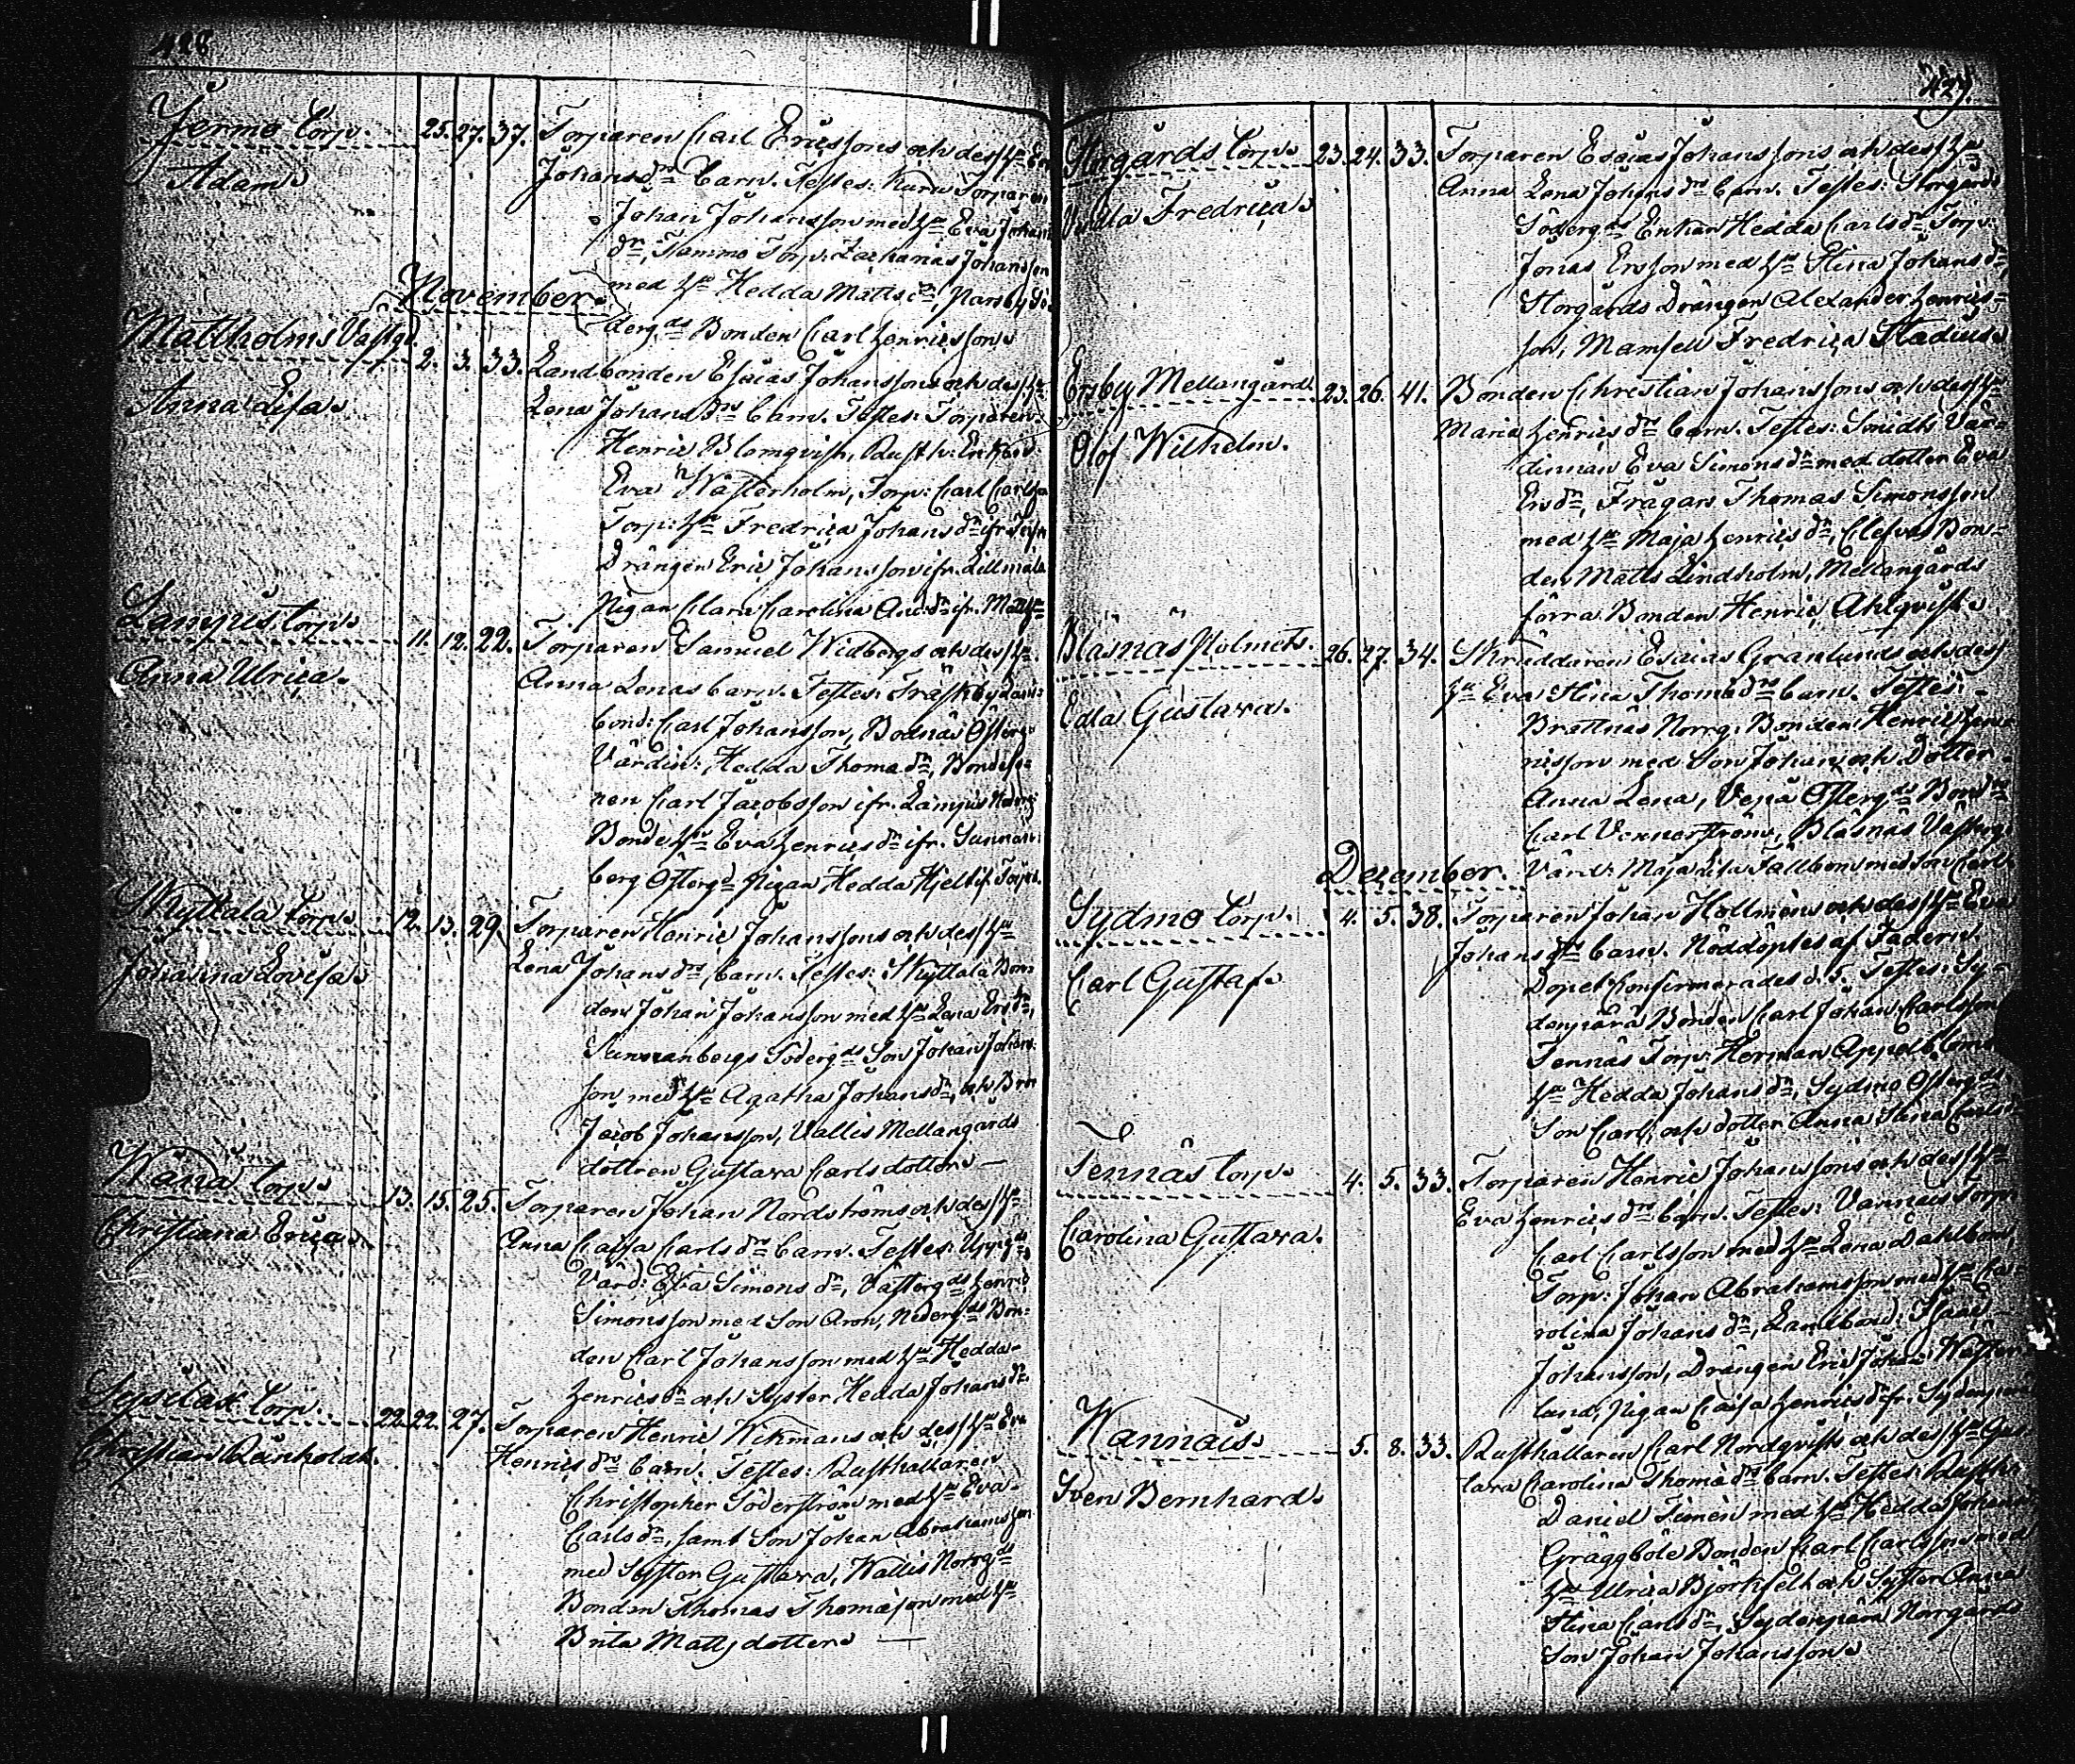 428
Jermo Torp. 25. 27. 37. Torparen Carl Ericssons och dess H:u
Adam. Johansd:rs barn. Testes: Torparen
Johan Johansson med H:u Eva Johans
d:r, Torp: Zacharias Johansson
med H:u Hedda Mattsd:r, Parsby Sö-
November.
derg:ds Bonden Carl Henricsson
Mattholms Västgd. 2. 3. 33. Landbonden Esaias Johanssons och dess H:u
Anna Lisa. Lena Johansd:rs barn. Testes: Torparen
Henric Blomqvist, Rusth:
Eva Wästerholm, Torp: Carl
Torp: H:u Fredrica Johansd:r ifr.
Drängen Eric Johansson ifr. Lillmälö
Pigan Clara Carolina ifr.
Lampis Torp. 11. 12. 22. Torparen Samuel Widbergs och dess H:u
Anna Ulrica. Anna Lenas barn. Testes: Träskby
bond: Carl Johansson, Bodnäs Österg:
Värdin: Hedda Thomad:r, Bonde
nen Carl Jacobsson ifr. Lampis
Bonde H:u Eva Henricsd:r ifr. Sunnan-
berg Österg:d Pigan Hedda
Skyttala Torp. 12. 13. 29. Torparen Henric Johanssons och dess H:u
Johanna Lovisa. Lena Johansd:rs barn. Testes: Skyttala Bon-
den Johan Johansson med H:u Lena Ersd:r,
Sunnanbergs Söderg:ds Son Johan Johans-
son med H:u Agatha Johansd:r, och Bror
Jacob Johansson, Vallis Mellangårds
dottren Gustava Carlsdotter. —
Wänä Torp. 13. 15. 25. Torparen Johan Nordströms och dess H:u
Christiana Erica. Anna Caisa Carlsd:rs barn. Testes: Uppg:ds
Värd: Eva Simonsd:r, Västerg:ds Henric
Simonsson med Son Aron, Nederg:ds Bon-
den Carl Johansson med H:u Hedda
Henricsd:r och Syster Hedda Johansd:r.
Sysilax Torp. 22. 22. 27. Torparen Henric Wikmans och dess H:u Eva
Christian Reinhold. Henricsd:rs barn. Testes: Rusthållaren
Christopher Söderström med H:u Eva
Carlsd:r, samt Son Johan Abrahamsson
med Syster Gustava, Wallis Norrg:ds
Bonden Thomas Thomasson med H:u
Brita Mattsdotter. —
429.
Storgårds Torp. 23. 24. 33. Torparen Esaias Johanssons och dess H:u
Fredrica. Anna Lena Johansd:rs barn. Testes: Storgårds
Söderg:ds Enkan Hedda Carlsd:r, Torp:
Jonas Ersson med H:u Stina Johansd:r,
Storgårds Drängen Alexander Henrics-
son, Mamsell Fredrica Stadius.
Ersby Mellangård. 23. 26. 41. Bonden Christian Johanssons och dess H:u
Olof Wilhelm. Maria Henricsd:rs barn. Testes: Smidts Vär-
dinnan Eva Simonsd:r med dotter Eva
Ersd:r, Fragars Thomas Simonsson
med H:u Maja Henricsd:r, Bon-
den Matts Lindholm, Mellangårds
förra Bonden Henric Ahlqvist.
Bläsnäs Holmets. 26. 27. 34. Skräddaren Esaias Granlunds och dess
Edla Gustava. H:u Eva Stina Thomad:rs barn. Testes:
Brattnäs Norrg: Bonden Henric Hen-
ricsson med Son Johan och Dotter
Anna Lena, Vepä Österg:ds Bond:n
Carl Vennerström, Bläsnäs Västerg:
December.
Värd: Maja Lisa Fallbom med Son Carl
Sydmo Torp. 4. 5. 38. Torparen Johan Hollméns och dess H:u Eva
Carl Gustaf. Johansd:rs barn. Nöddöptes af Fadern.
Dopet Confirmerades d. 5. Testes: Sy-
Bonden Carl Johan Carlsson
Tennäs Torp: Herman
H:u Hedda Johansd:r, Sydmo Österg:ds
Son Carl, och dotter Anna Stina Carlsd:r
Tennäs Torp. 4. 5. 33. Torparen Henric Johanssons och dess H:u
Carolina Gustava. Eva Henricsd:rs barn. Testes: Vannais Torp:
Carl Carlsson med H:u Lena Dahlbom,
Torp: Johan Abrahamsson med H:u Ca-
rolina Johansd:r, Landbond: Isaac
Johansson, Drängen Eric Johan Wäster-
lund, Pigan Caisa Henricsd:r fr.
Wannais. 5. 8. 33. Rusthållaren Carl Nordqvists och dess H:u Gus-
Sven Bernhard. tava Carolina Thomad:rs barn. Testes: Rusth:
Daniel Simén med H:u Hedda Johansd:r
Gräggböle Bonden Carl Carlsson med
H:u Ulrica Björksell och Syster Anna
Stina Carlsd:r, Norrgårds
Son Johan Johansson.